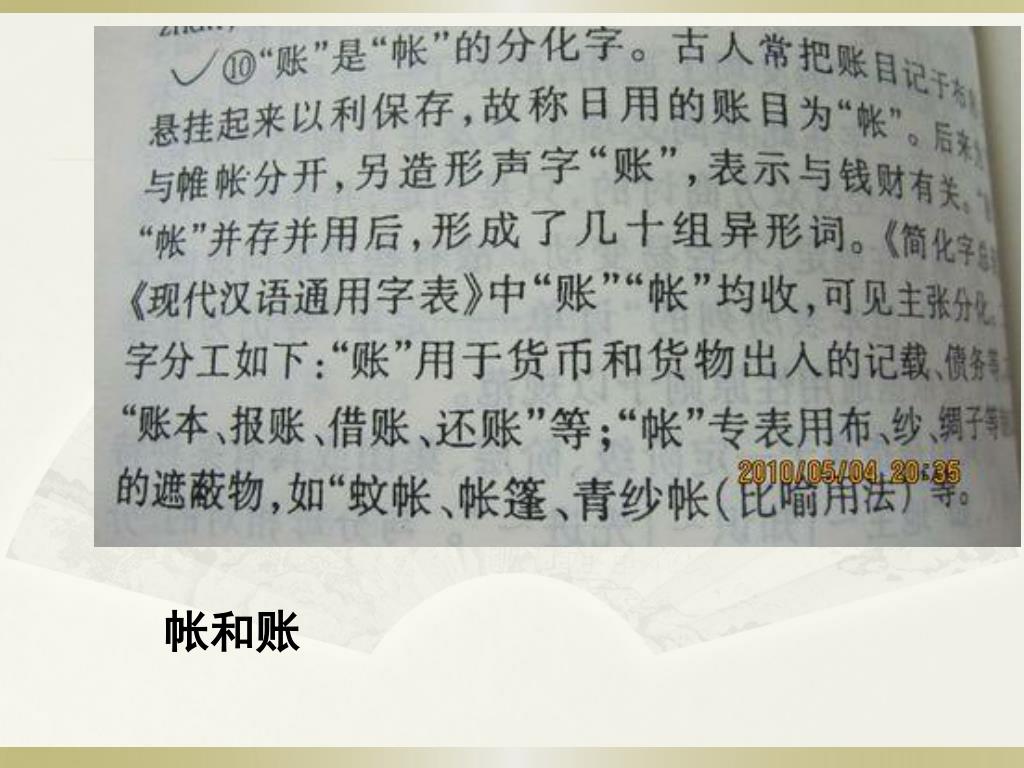 ⑩“账”是“帐”的分化字。古人常把账目记于布
悬挂起来以利保存,故称日用的账目为“帐”。后来为
与帷帐分开,另造形声字“账”,表示与钱财有关。
“帐”并存并用后,形成了几十组异形词。《简化字总
《现代汉语通用字表》中“账”“帐”均收,可见主张分化。
字分工如下:“账”用于货币和货物出入的记载、债务等
“账本、报账、借账、还账”等;“帐”专表用布、纱、绸子等
的遮蔽物,如“蚊帐、帐篷、青纱帐(比喻用法)”等。
2010/05/04 20:35
帐和账